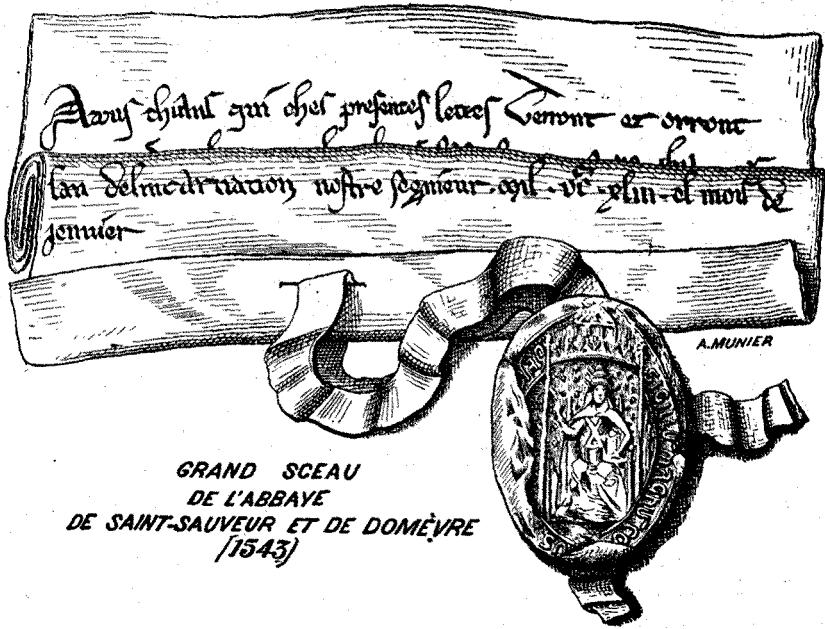 A tous chiaus qui ches presentes lettres verront et orront
lan delincarnation nostre segnieur · mil · vc · xliii · el mois de
jenvier
A. MUNIER
GRAND SCEAU
DE L'ABBAYE
DE SAINT-SAUVEUR ET DE DOMÈVRE
(1543)